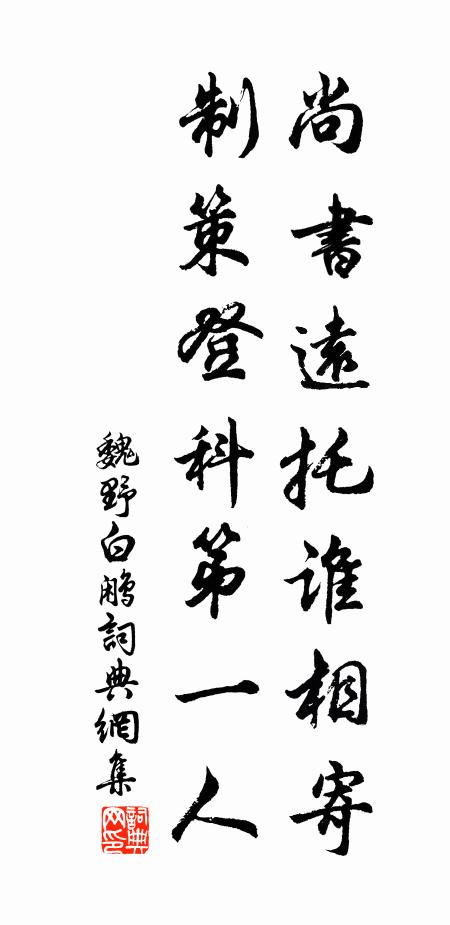 尚書遠托誰相寄
制策登科第一人
魏野白鷴詞典網集
詞典网印